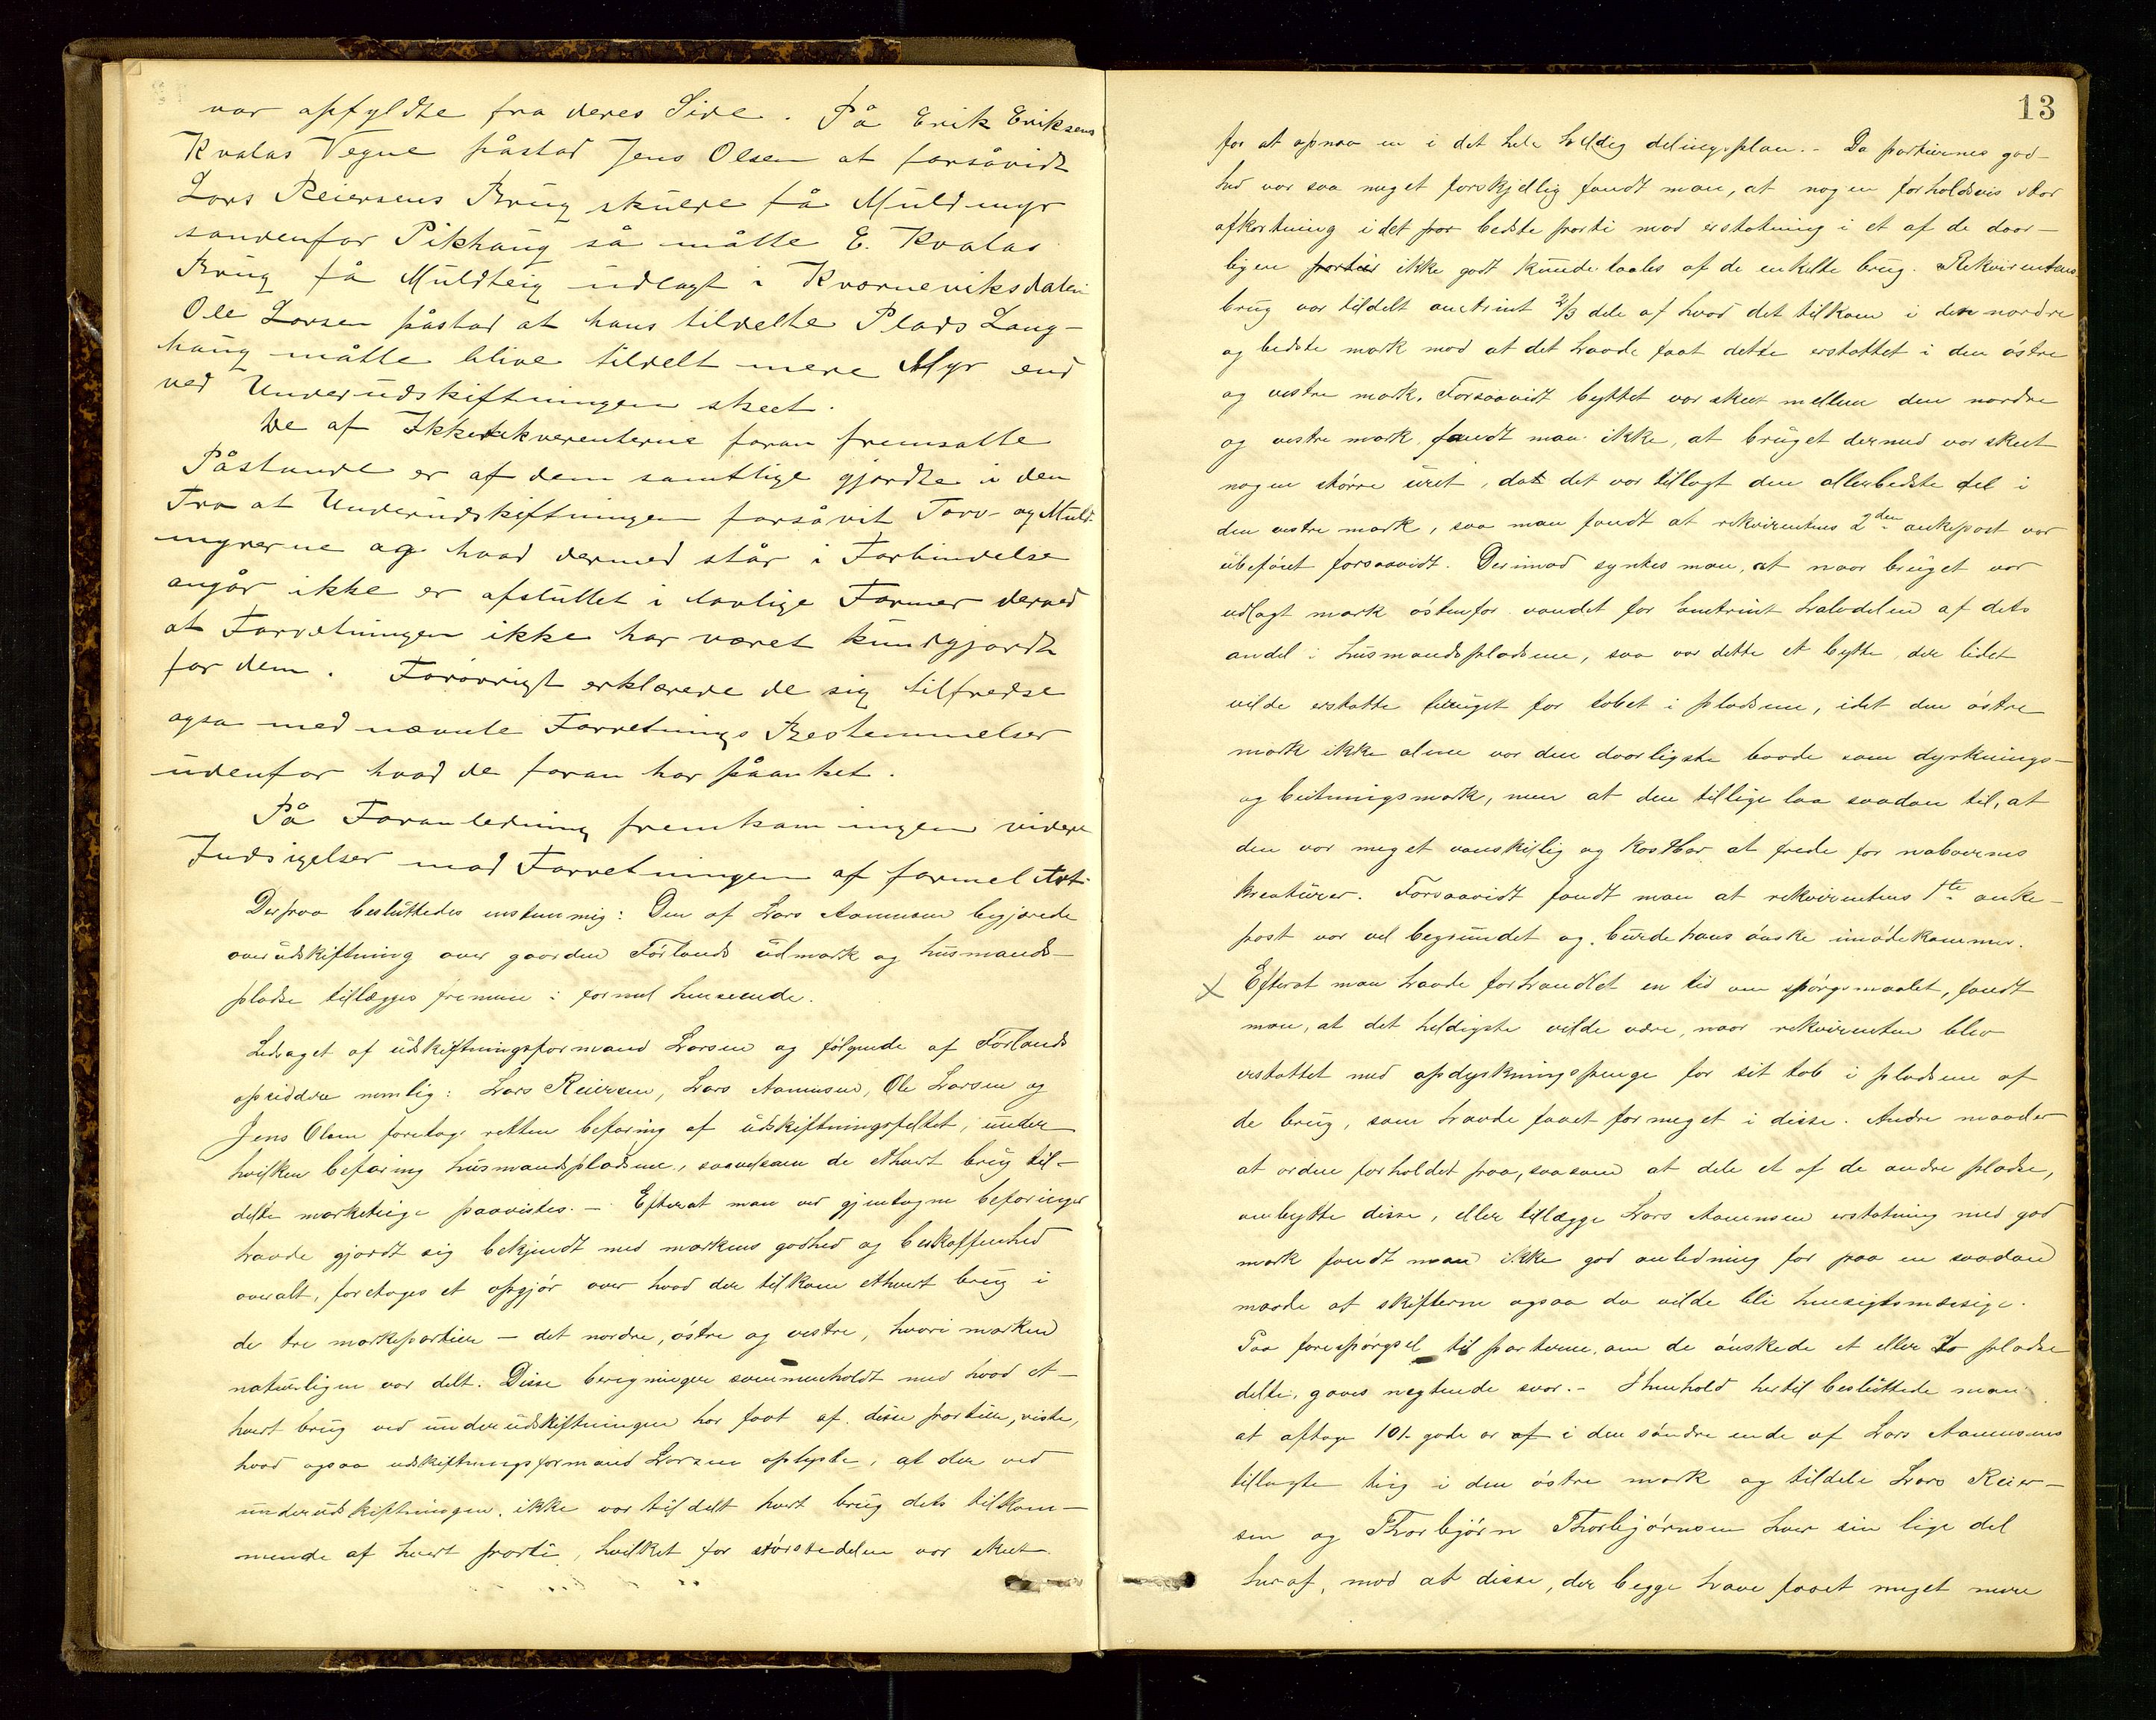 var opfyldte fra deres Side. På Erik Eriksens
Kvalas Vegne påstod Jens Olsen at forsåvidt
Lars Reiersens Brug skulde få Muldmyr
søndenfor Pikhaug så måtte E. Kvalas
Brug få Muldteig udlagt i Kvorneviksdalen
Ole Larsen påstod at hans tildelte Plads Lang-
haug måtte blive tildelt mere Myr end
ved Underudskiftningen skeet.
De af Ikkerekverenterne foran fremsatte
Påstande er af dem samtlige gjordte i den
Tro at Underudskiftningen forsåvit Torv- og Muld-
myrerne og hvad dermed står i Forbindelse
angår ikke er afsluttet i lovlige Former derved
at Forretningen ikke har været kundgjordt
for dem. Forøvrigt erklærede de sig tilfredse
ogsa med nævnte Forretnings Bestemmelser
udenfor hvad de foran har påanket.
På Foranledning fremkom ingen videre
Indsigelser mod Forretningen af formel Art.
Derpaa besluttedes enstemmig: Den af Lars Aamundsen begjærede
overudskiftning over gaarden Førlands udmark og husmands-
pladse tillægges fremme i formel henseende.
Ledsaget af udskiftningsformand Larsen og følgende af Førlands
opsiddere nemlig: Lars Reiersen, Lars Aamunsen, Ole Larsen og
Jens Olsen foretog retten befaring af udskiftningsfeltet, under
hvilken befaring husmandspladsene, saavelsom de ethvert brug til-
delte marketeige paavistes. — Efterat man ved gjentagne befaringer
havde gjordt sig bekjendt med markens godhed og beskaffenhed
overalt, foretoges et opgjør over hvad der tilkom ethvert brug i
de tre markepartier — det nordre, østre og vestre, hvori marken
naturligen var delt. Disse beregninger sammenholdt med hvad et-
hvert brug ved underudskiftningen har faat af disse partier, viste,
hvad ogsaa udskiftningsformand Larsen oplyste, at der ved
underudskiftningen ikke var tildelt hvert brug dets tilkom-
mende af hvert parti, hvilket for størstedelen var skeet
13
for at opnaa en i det hele heldig delingsplan. - Da partiernes god-
hed var saa meget forskjellig fandt man, at nogen forholdsvis stor
afkortning i det bedste parti mod erstatning i et af de daar-
ligere partier ikke godt kunde taales af de enkelte brug. Rekvirentens
brug var tildelt omtrint 2/3 dele af hvad det tilkom i den nordre
og bedste mark mod at det havde faat dette erstattet i den østre
og vestre mark. Forsaavidt byttet var skeet mellem den nordre
og vestre mark, fandt man ikke, at bruget dermed var skeet
nogen større uret, da det var tillagt den allerbedste del i
den vestre mark, saa man fandt at rekvirentens 2den ankepost var
ubeføiet forsaavidt. Derimod syntes man, at naar bruget var
udlagt mark østenfor vandet for omtrint halvdelen af dets
andel i husmandspladsene, saa var dette et bytte, der lidet
vilde erstatte bruget for tabet i pladsene, idet den østre
mark ikke alene var den daarligste baade som dyrknings-
og beitningsmark, men at den tillige laa saadan til, at
den var meget vanskelig og kostbar at frede for naboernes
kreaturer. Forsaavidt fandt man at rekvirentens 1te anke-
post var vel begrundet og burde hans ønske imødekommes.
x Efterat man havde forhandlet en tid om spørgsmaalet, fandt
man, at det heldigste vilde være, naar rekvirenten blev
erstattet med opdyrkningspenge for sit tab i pladsene af
de brug, som havde faaet formeget i disse. Andre maader
at ordne forholdet paa, saasom at dele et af de andre pladse,
ombytte disse, eller tillægge Lars Aamunsen erstatning med god
mark fandt man ikke god anledning for paa en saadan
maade at skifterne ogsaa da vilde bli hensigtsmæssige.
Paa forespørgsel til parterne, om de ønskede et eller to pladse
delte, gaves nægtende svar. - I henhold hertil besluttede man
at aftage 101 gode ar i den søndre ende af Lars Aamunsens
tillagte teig i den østre mark og tildele Lars Reier-
sen og Thorbjørn Thorbjørnsen hver sin lige del
heraf, mod at disse, der begge have faaet meget mere